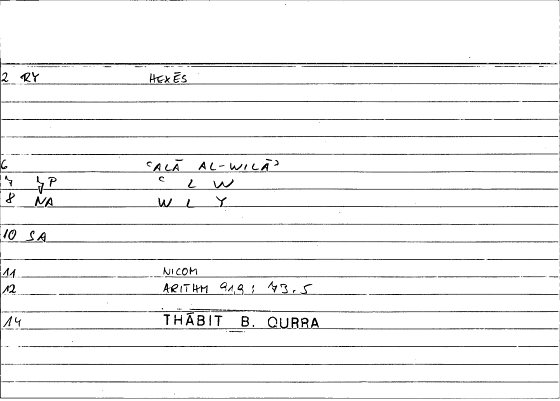 2 RY HEXĒS
6 ʿALĀ AL-WILĀʾ
7 ↳P ʿ L W
8 NA W L Y
10 SA
11 NICOM
12 ARITHM 91,9; 73.5
14 THĀBIT B. QURRA